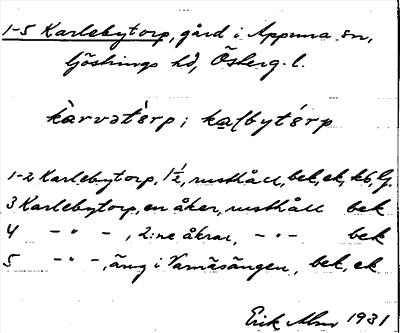 1-5 Karlebytorp, gård i Appuna sn,
Göstrings hd, Österg. l.
kàrvətərp; kalbytérp
1-2 Karlebytorp, 1½, rusthåll, bek, ek, kb, G.
3 Karlebytorp, en åker, rusthåll bek
4 - " - , 2:ne åkrar, - " - bek
5 - " - , äng i Varnäsängen, bek, ek
Erik Alm 1931